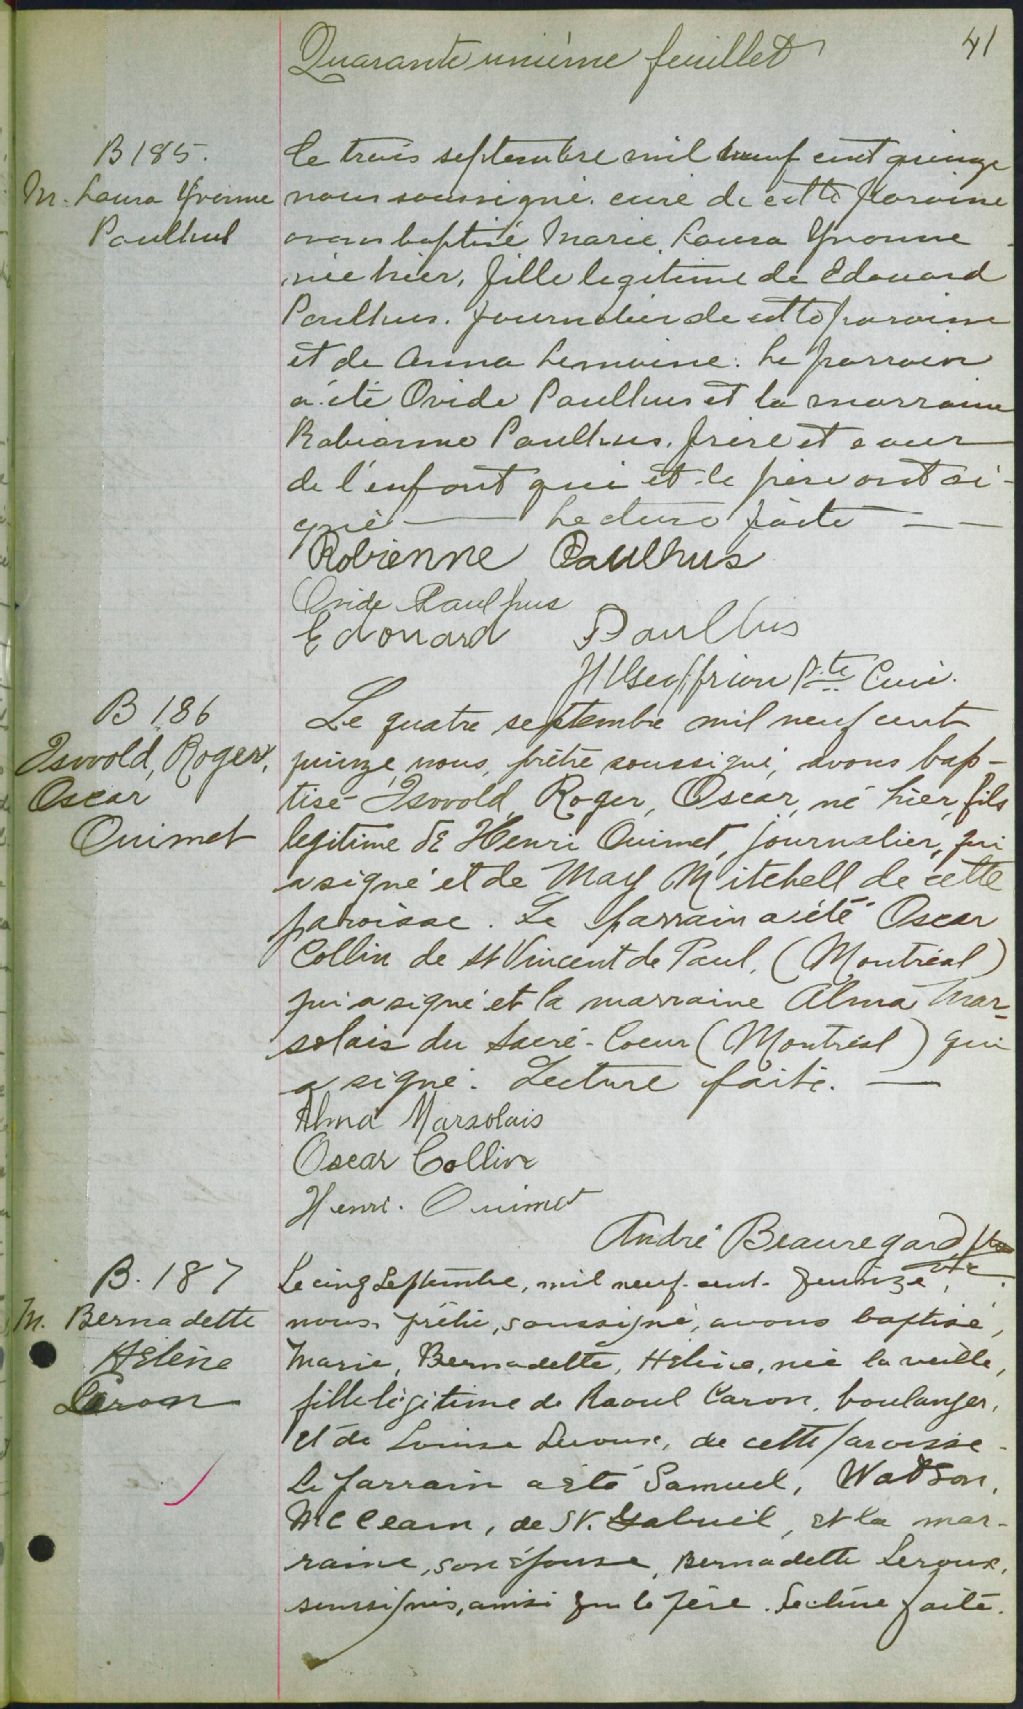 Quarante unième feuillet
41
B 185.
M. Laura Yvonne
Paulhus
Le trois septembre mil neuf cent quinze
nous soussigné curé de cette paroisse
avons baptisé Marie Laura Yvonne
née hier, fille legitime de Edouard
Paulhus. journalier de cette paroisse
et de Anna Lemoine. Le parrain
a été Ovide Paulhus et la marraine
Robienne Paulhus. frère et soeur
de l'enfant qui et le père ont si-
gné — Lecture faite —
Robienne Paulhus
Ovide Paulhus
Edouard Paulhus
Geoffrion Ptre Curé.
B 186
Isvold, Roger,
Oscar
Ouimet
Le quatre septembre mil neuf cent
quinze, nous, prêtre soussigné, avons bap-
tisé Isvold, Roger, Oscar, né hier, fils
legitime de Henri Ouimet, journalier, qui
a signé et de May Mitchell de cette
paroisse. Le parrain a été Oscar
Collin de St Vincent de Paul, (Montréal)
qui a signé et la marraine Alma Mar-
solais du Sacré-Coeur (Montréal) qui
a signé. Lecture faite. —
Alma Marsolais
Oscar Collin
Henri. Ouimet
André Beauregard, ptre
vic.
B. 187
M. Bernadette
Hélène
Caron
Le cinq Septembre, mil neuf-cent-quinze,
nous prêtre, soussigné, avons baptisé,
Marie, Bernadette, Hélène, née la veille,
fille légitime de Raoul Caron, boulanger,
et de Louise Leroux, de cette paroisse.
Le parrain a été Samuel, Watson,
McClearn, de St. Gabriel, et la mar-
raine, son épouse, Bernadette Leroux,
soussignés, ainsi que le père. Lecture faite.